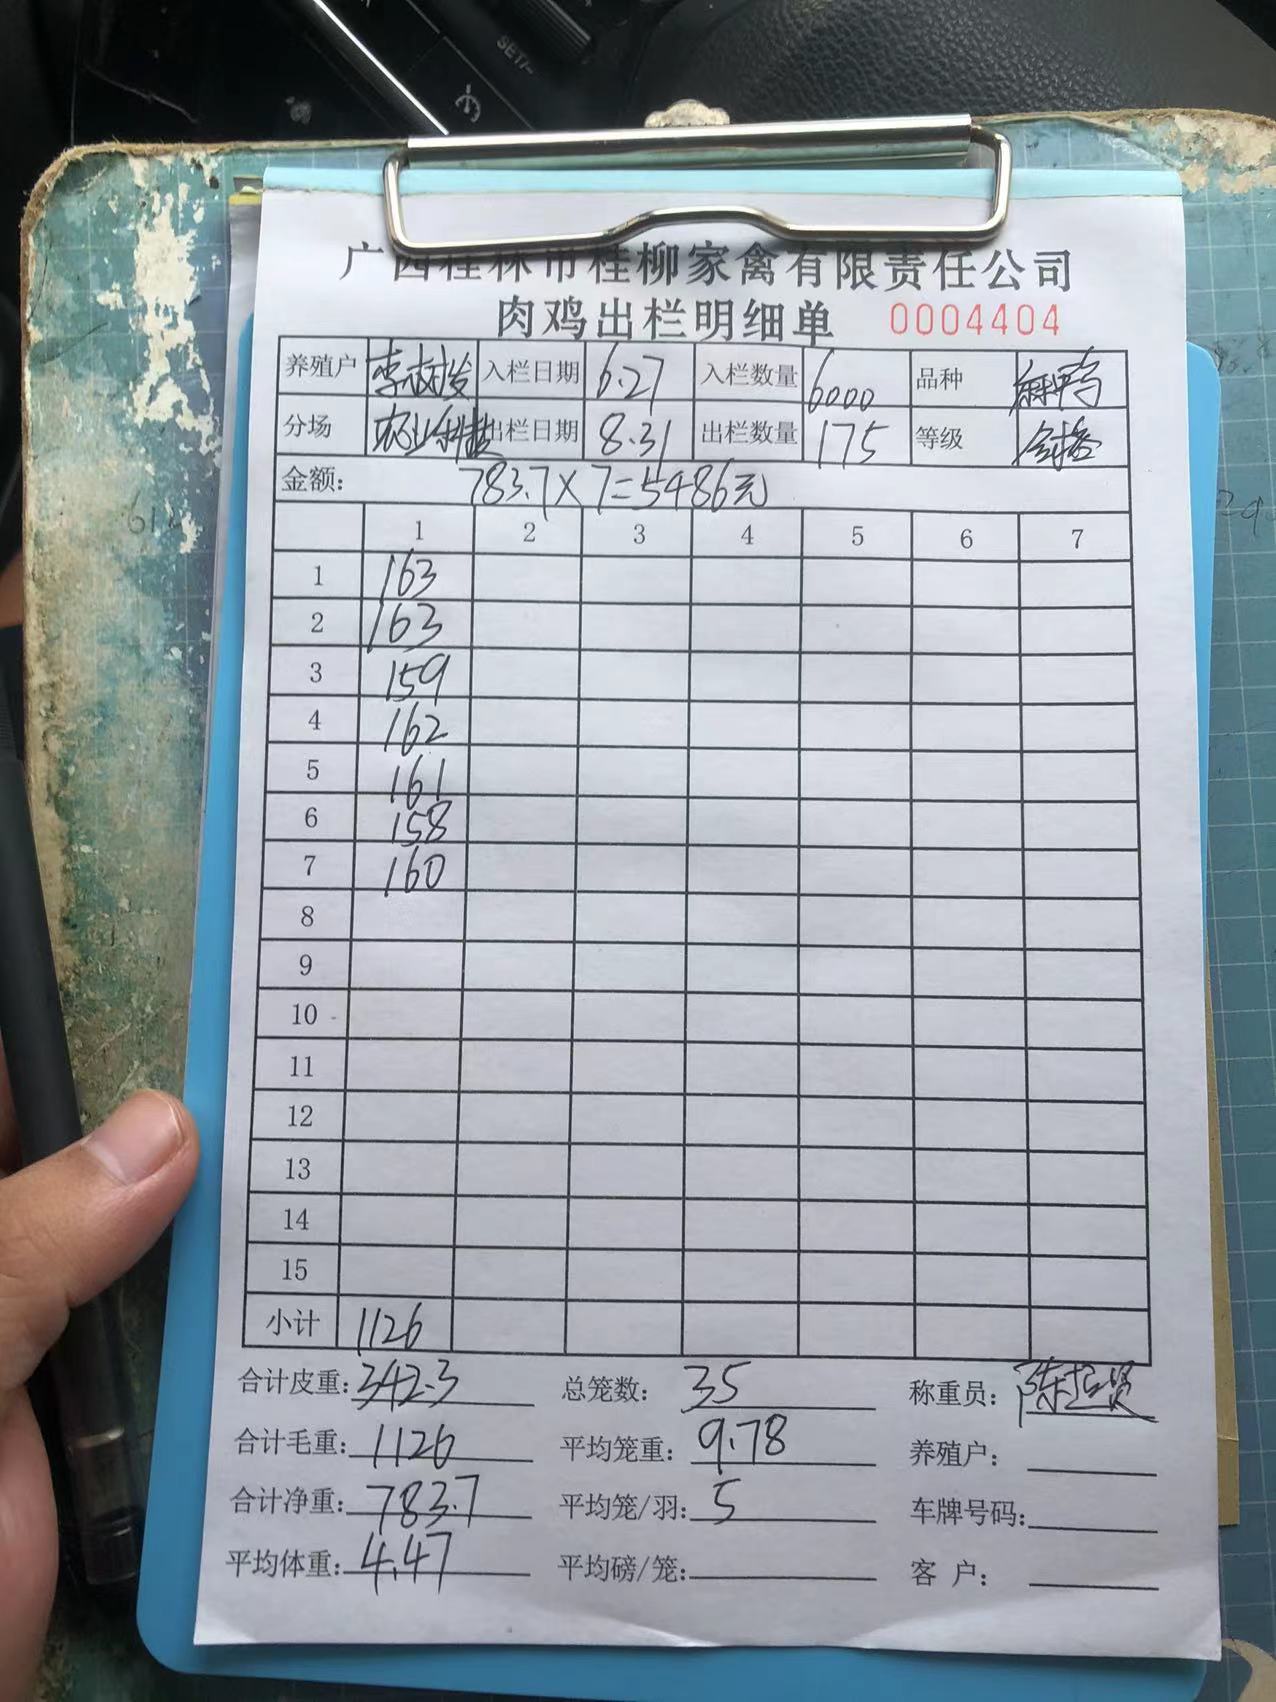 SET/-
广西桂林市桂柳家禽有限责任公司
肉鸡出栏明细单 0004404
养殖户 李 入栏日期 6.27 入栏数量 6000 品种 麻鸭
分场 农业科 出栏日期 8.31 出栏数量 175 等级
金额: 783.7×7=5486元
1 2 3 4 5 6 7
1 163
2 163
3 159
4 162
5 161
6 158
7 160
8
9
10
11
12
13
14
15
小计 1126
合计皮重: 342.3 总笼数: 35 称重员: 陈
合计毛重: 1126 平均笼重: 9.78 养殖户:
合计净重: 783.7 平均笼/羽: 5 车牌号码:
平均体重: 4.47 平均磅/笼: 客户: